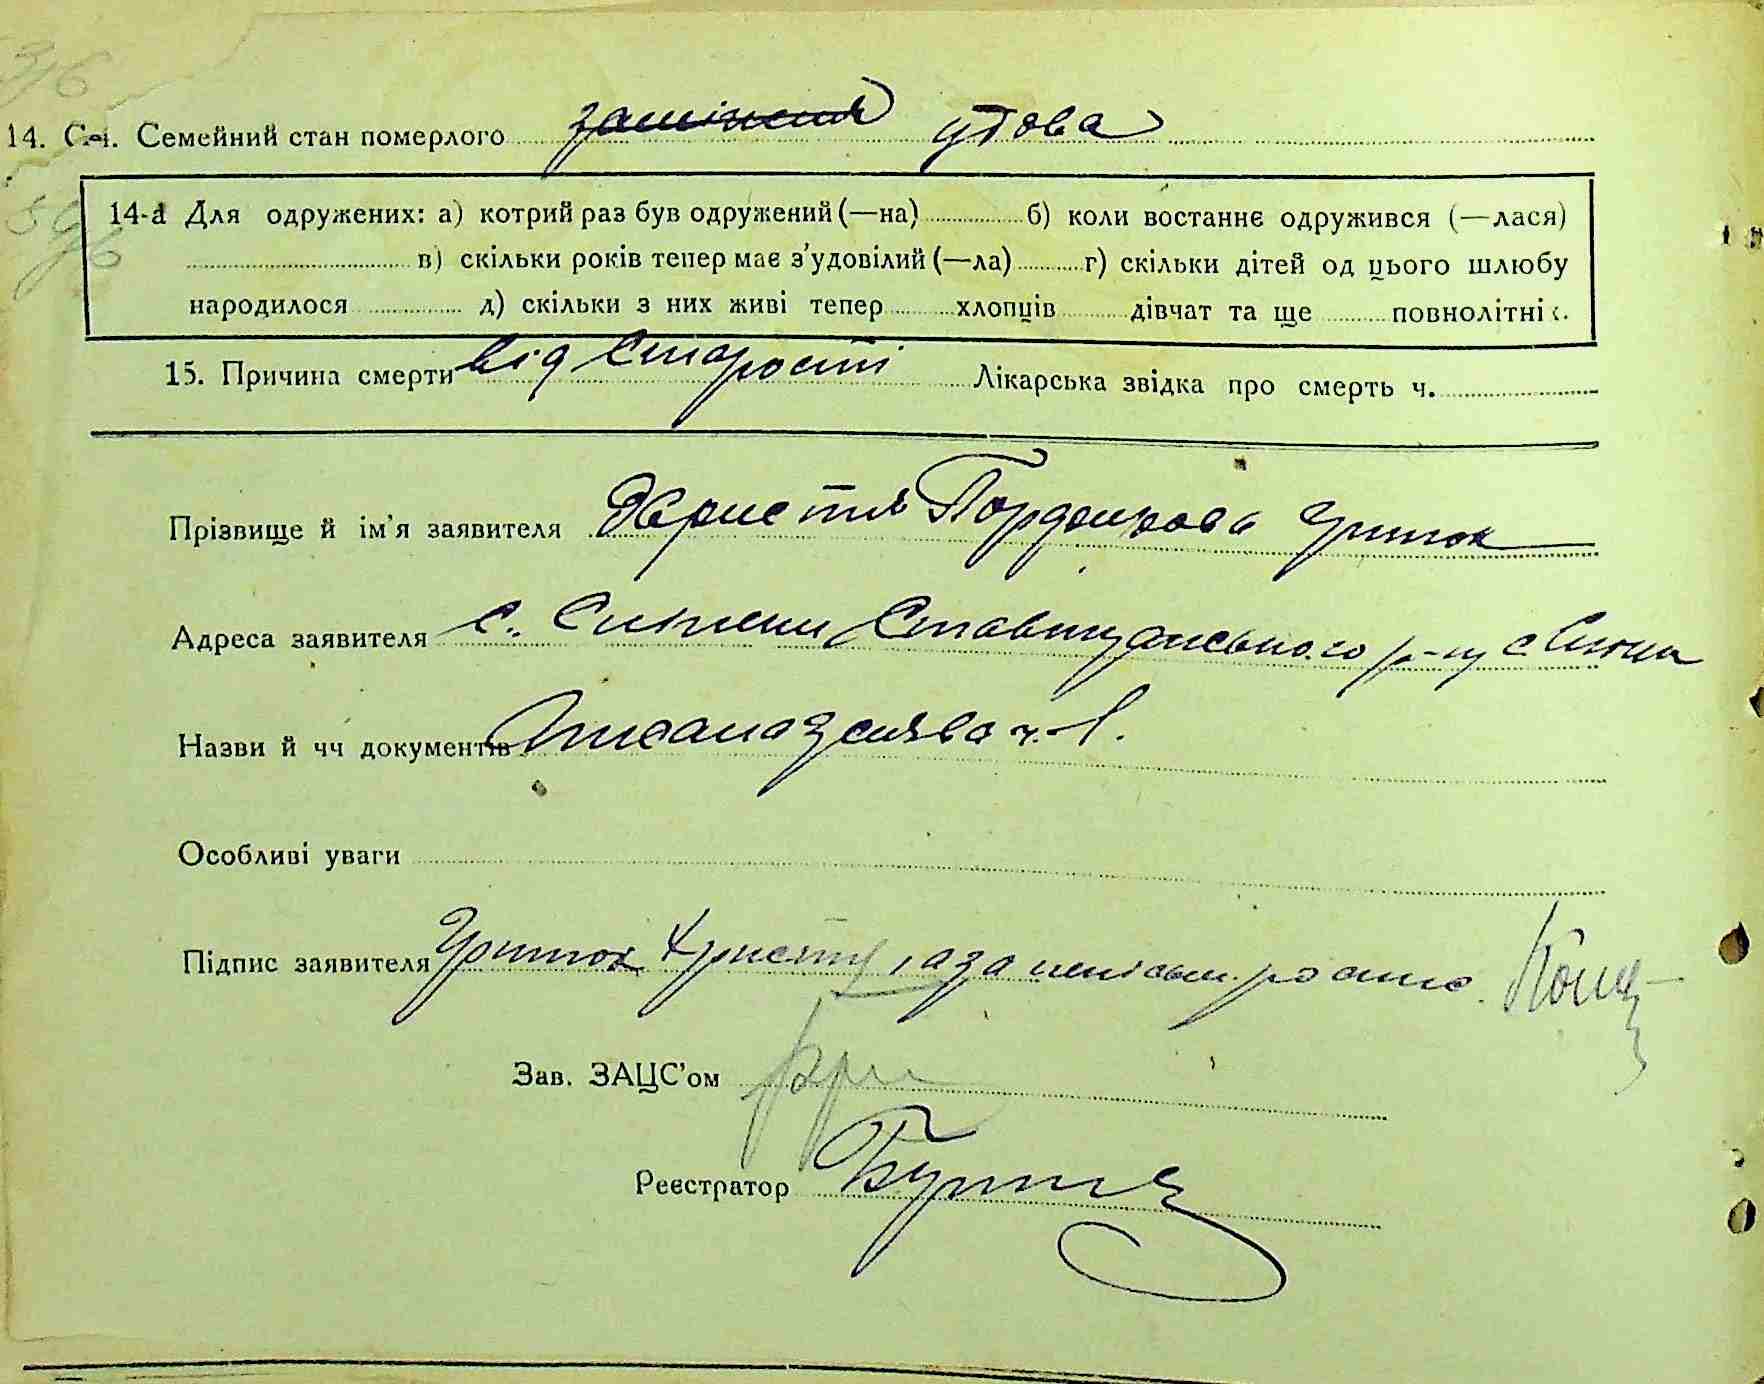 316
14. Сні. Семейний стан померлого замінсня удова
14-а Для одружених: а) котрий раз був одружений (—на) б) коли востаннє одружився (—лася)
в) скільки років тепер має з'удовілий (—ла) г) скільки дітей од цього шлюбу
народилося д) скільки з них живі тепер хлопців дівчат та ще повнолітніх.
15. Причина смерти від старости Лікарська звідка про смерть ч.
Прізвище й ім'я заявителя Христя Гриток
Адреса заявителя с. Ставищанського р-ну с
Назви й чч документів заява ч. 1.
Особливі уваги
Підпис заявителя Гриток Христя, а за неписьм.
Зав. ЗАЦС'ом
Реєстратор